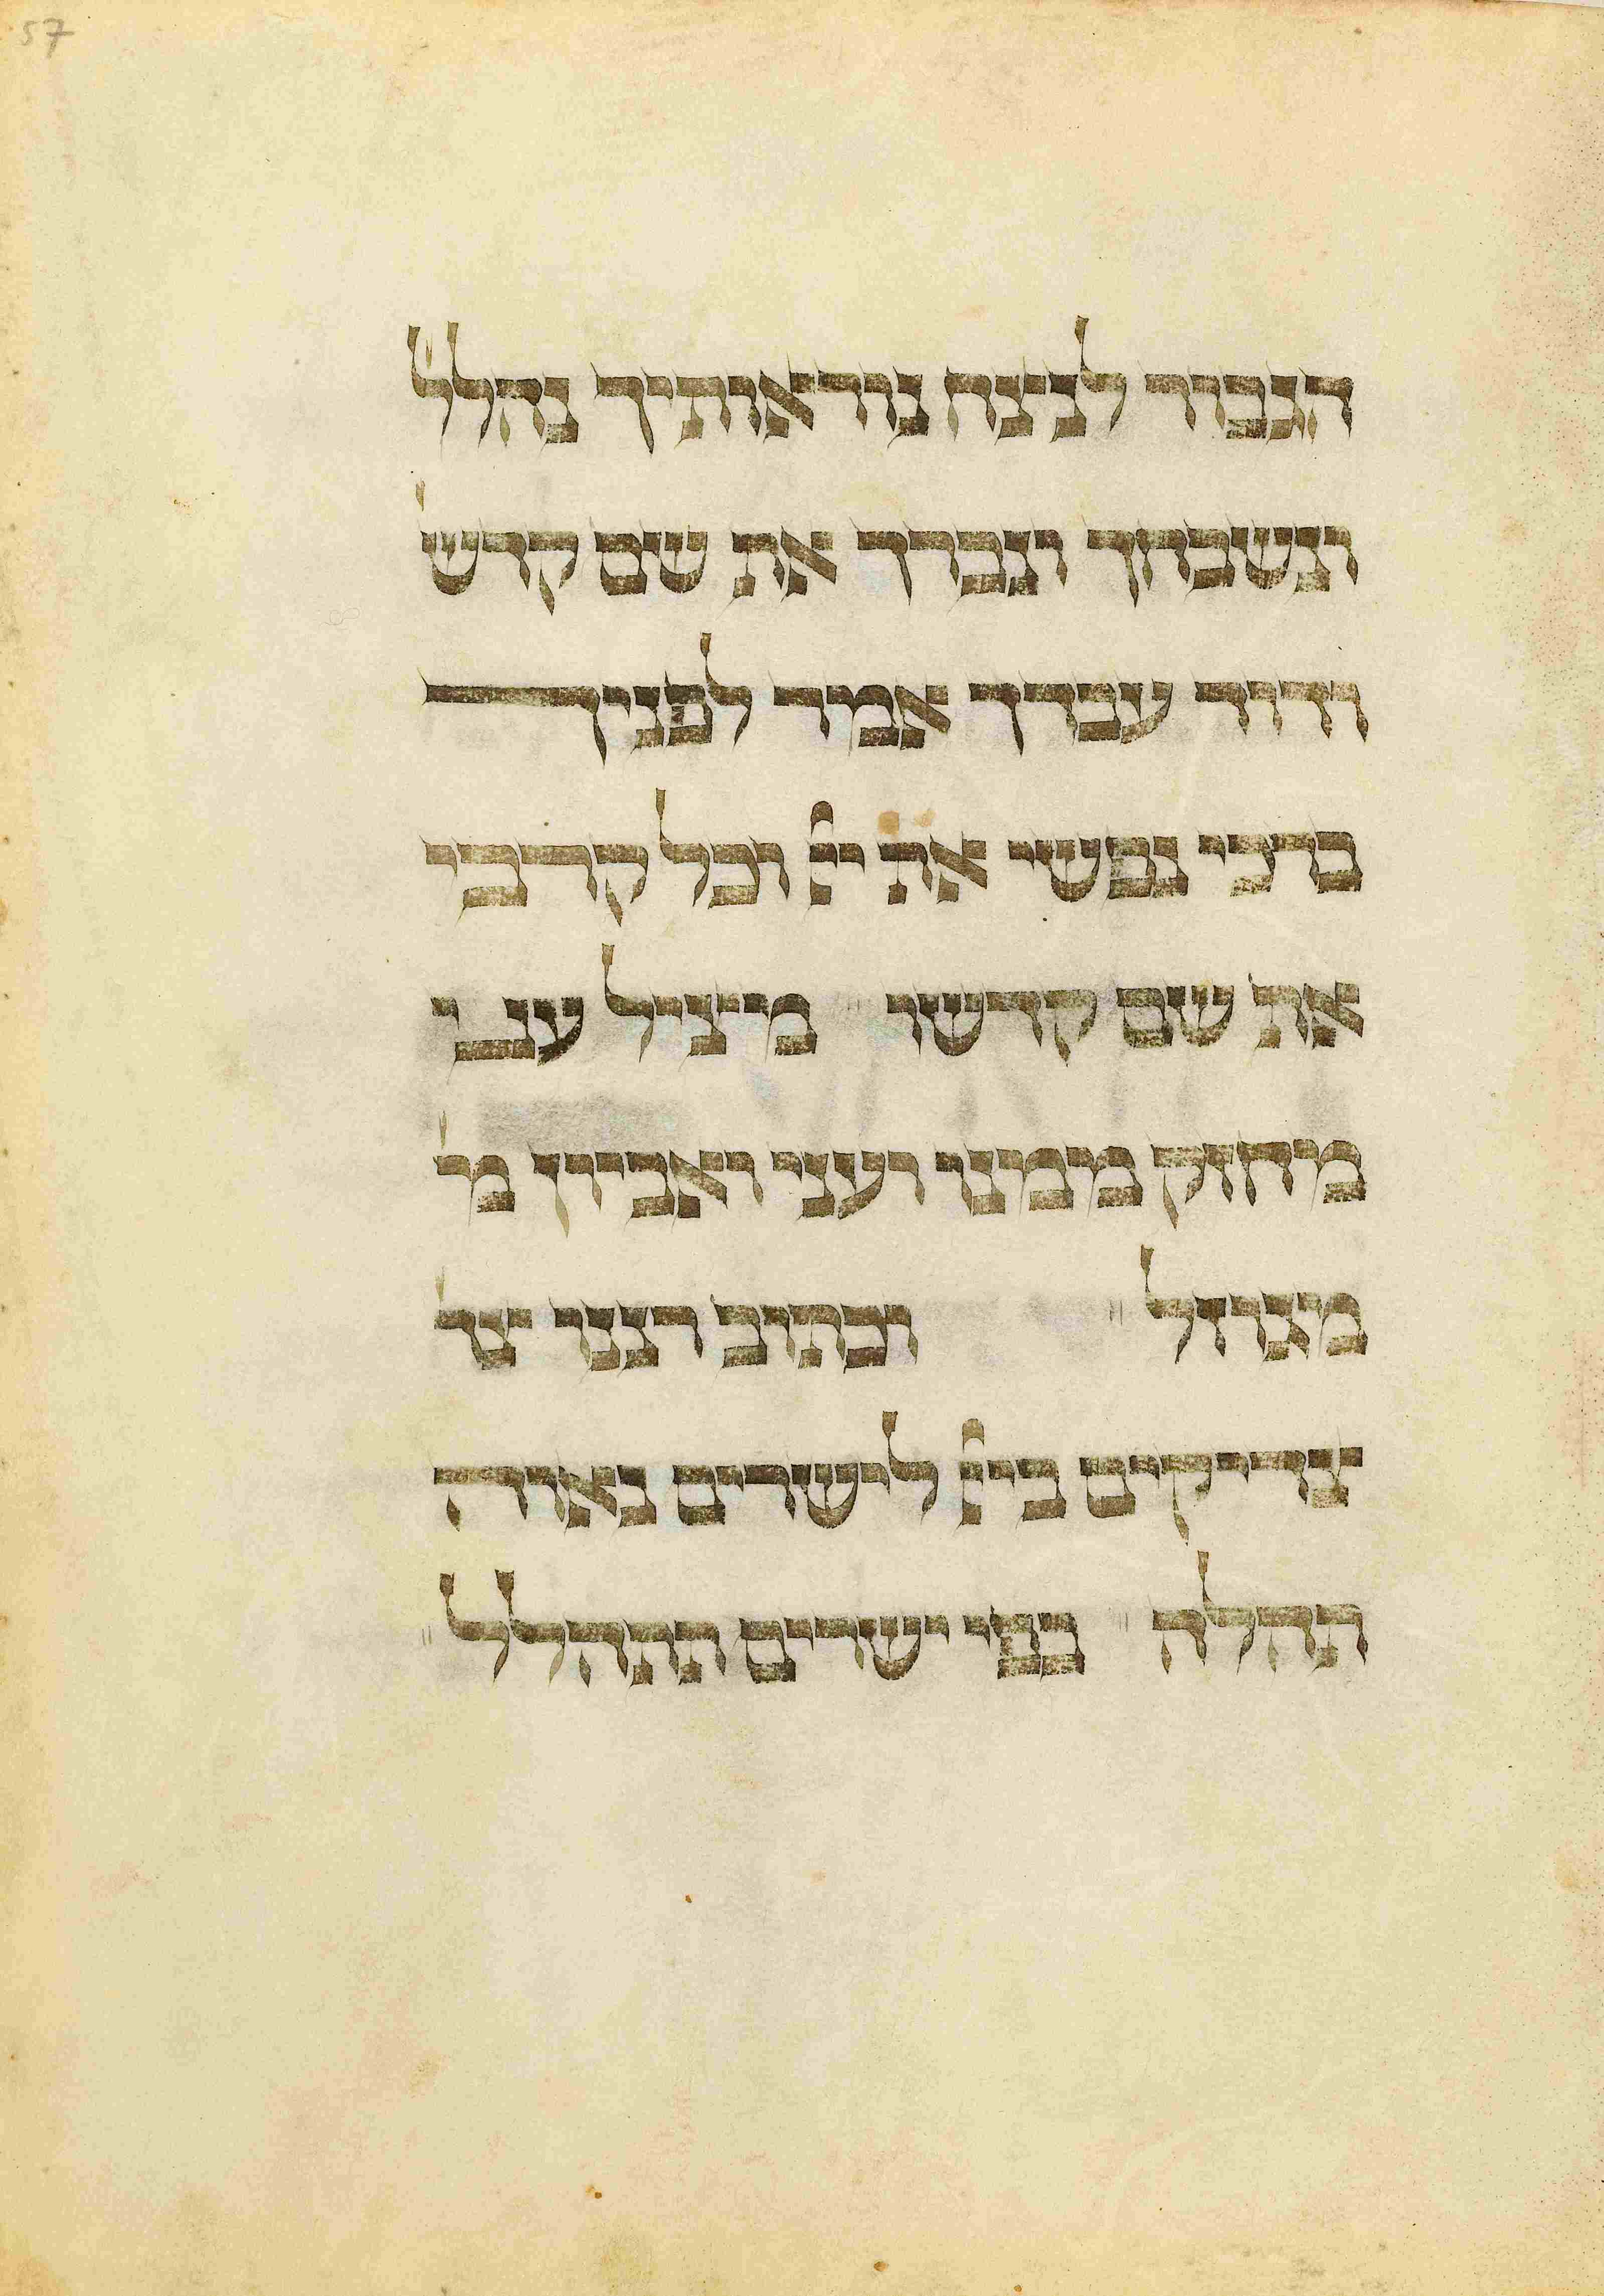 57
הגבור לניצח נוראותיך נהלל
ונשבחך ונברך את שם קדש
ודוד עבדך אמר לפניך
ברכי נפשי את יי וכל קרבי
את שם קדשו מיציל עני
מחזק ממינו ועני ואביון מ
מיגוזל וכתוב רננו צד
צדיקים ביי לישרים נאוה
תהלה בפי ישרים תתהלל